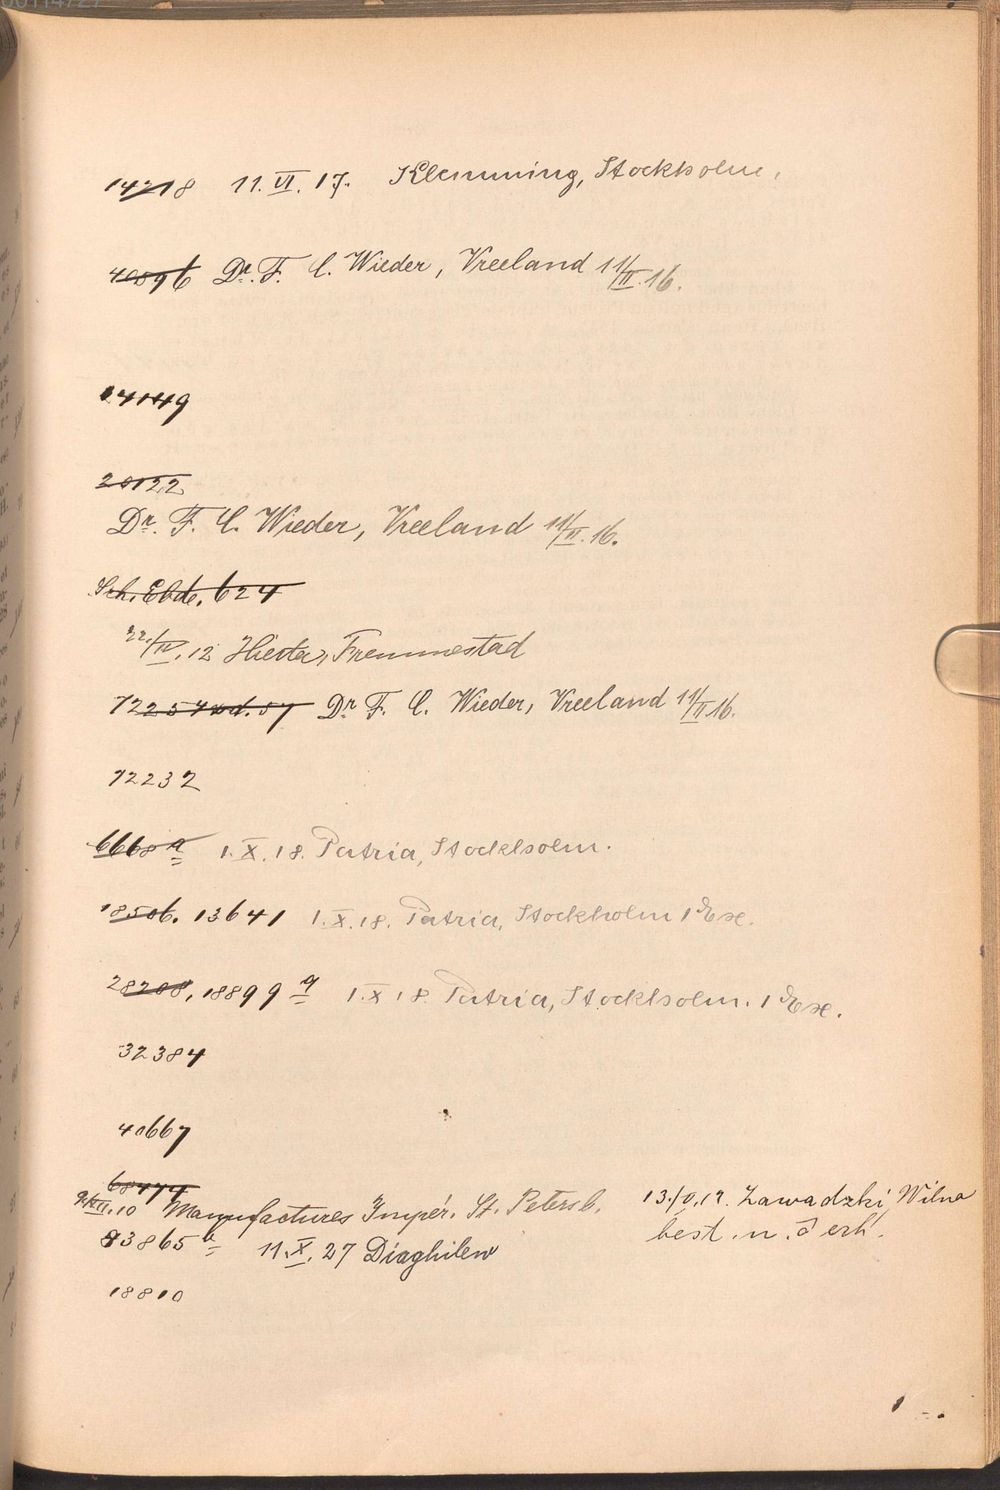 14218 11. VI. 17. Klemming, Stockholm,
40896 Dr. F. C. Wieder, Vreeland 11/II. 16.
14149
20122
Dr. F. C. Wieder, Vreeland 11/II. 16.
Sch. Ebde. 624
22./IV. 12 Hierta, Fremmestad
72254 ad. 57 Dr F. C. Wieder, Vreeland 11/II 16.
72232
6668 a 1. X. 18. Patria, Stockholm.
18506. 13641 1. X. 18. Patria, Stockholm 1 Ex.
28208, 18899 a 1. X 18 Patria, Stockholm. 1 Ex.
32384
40667
68474
10 Manufactures Impér. St. Petersb. 13./V. 12. Zawadzki, Wilna
best. n. erh.
83865 11. X. 27 Diaghilew
18810